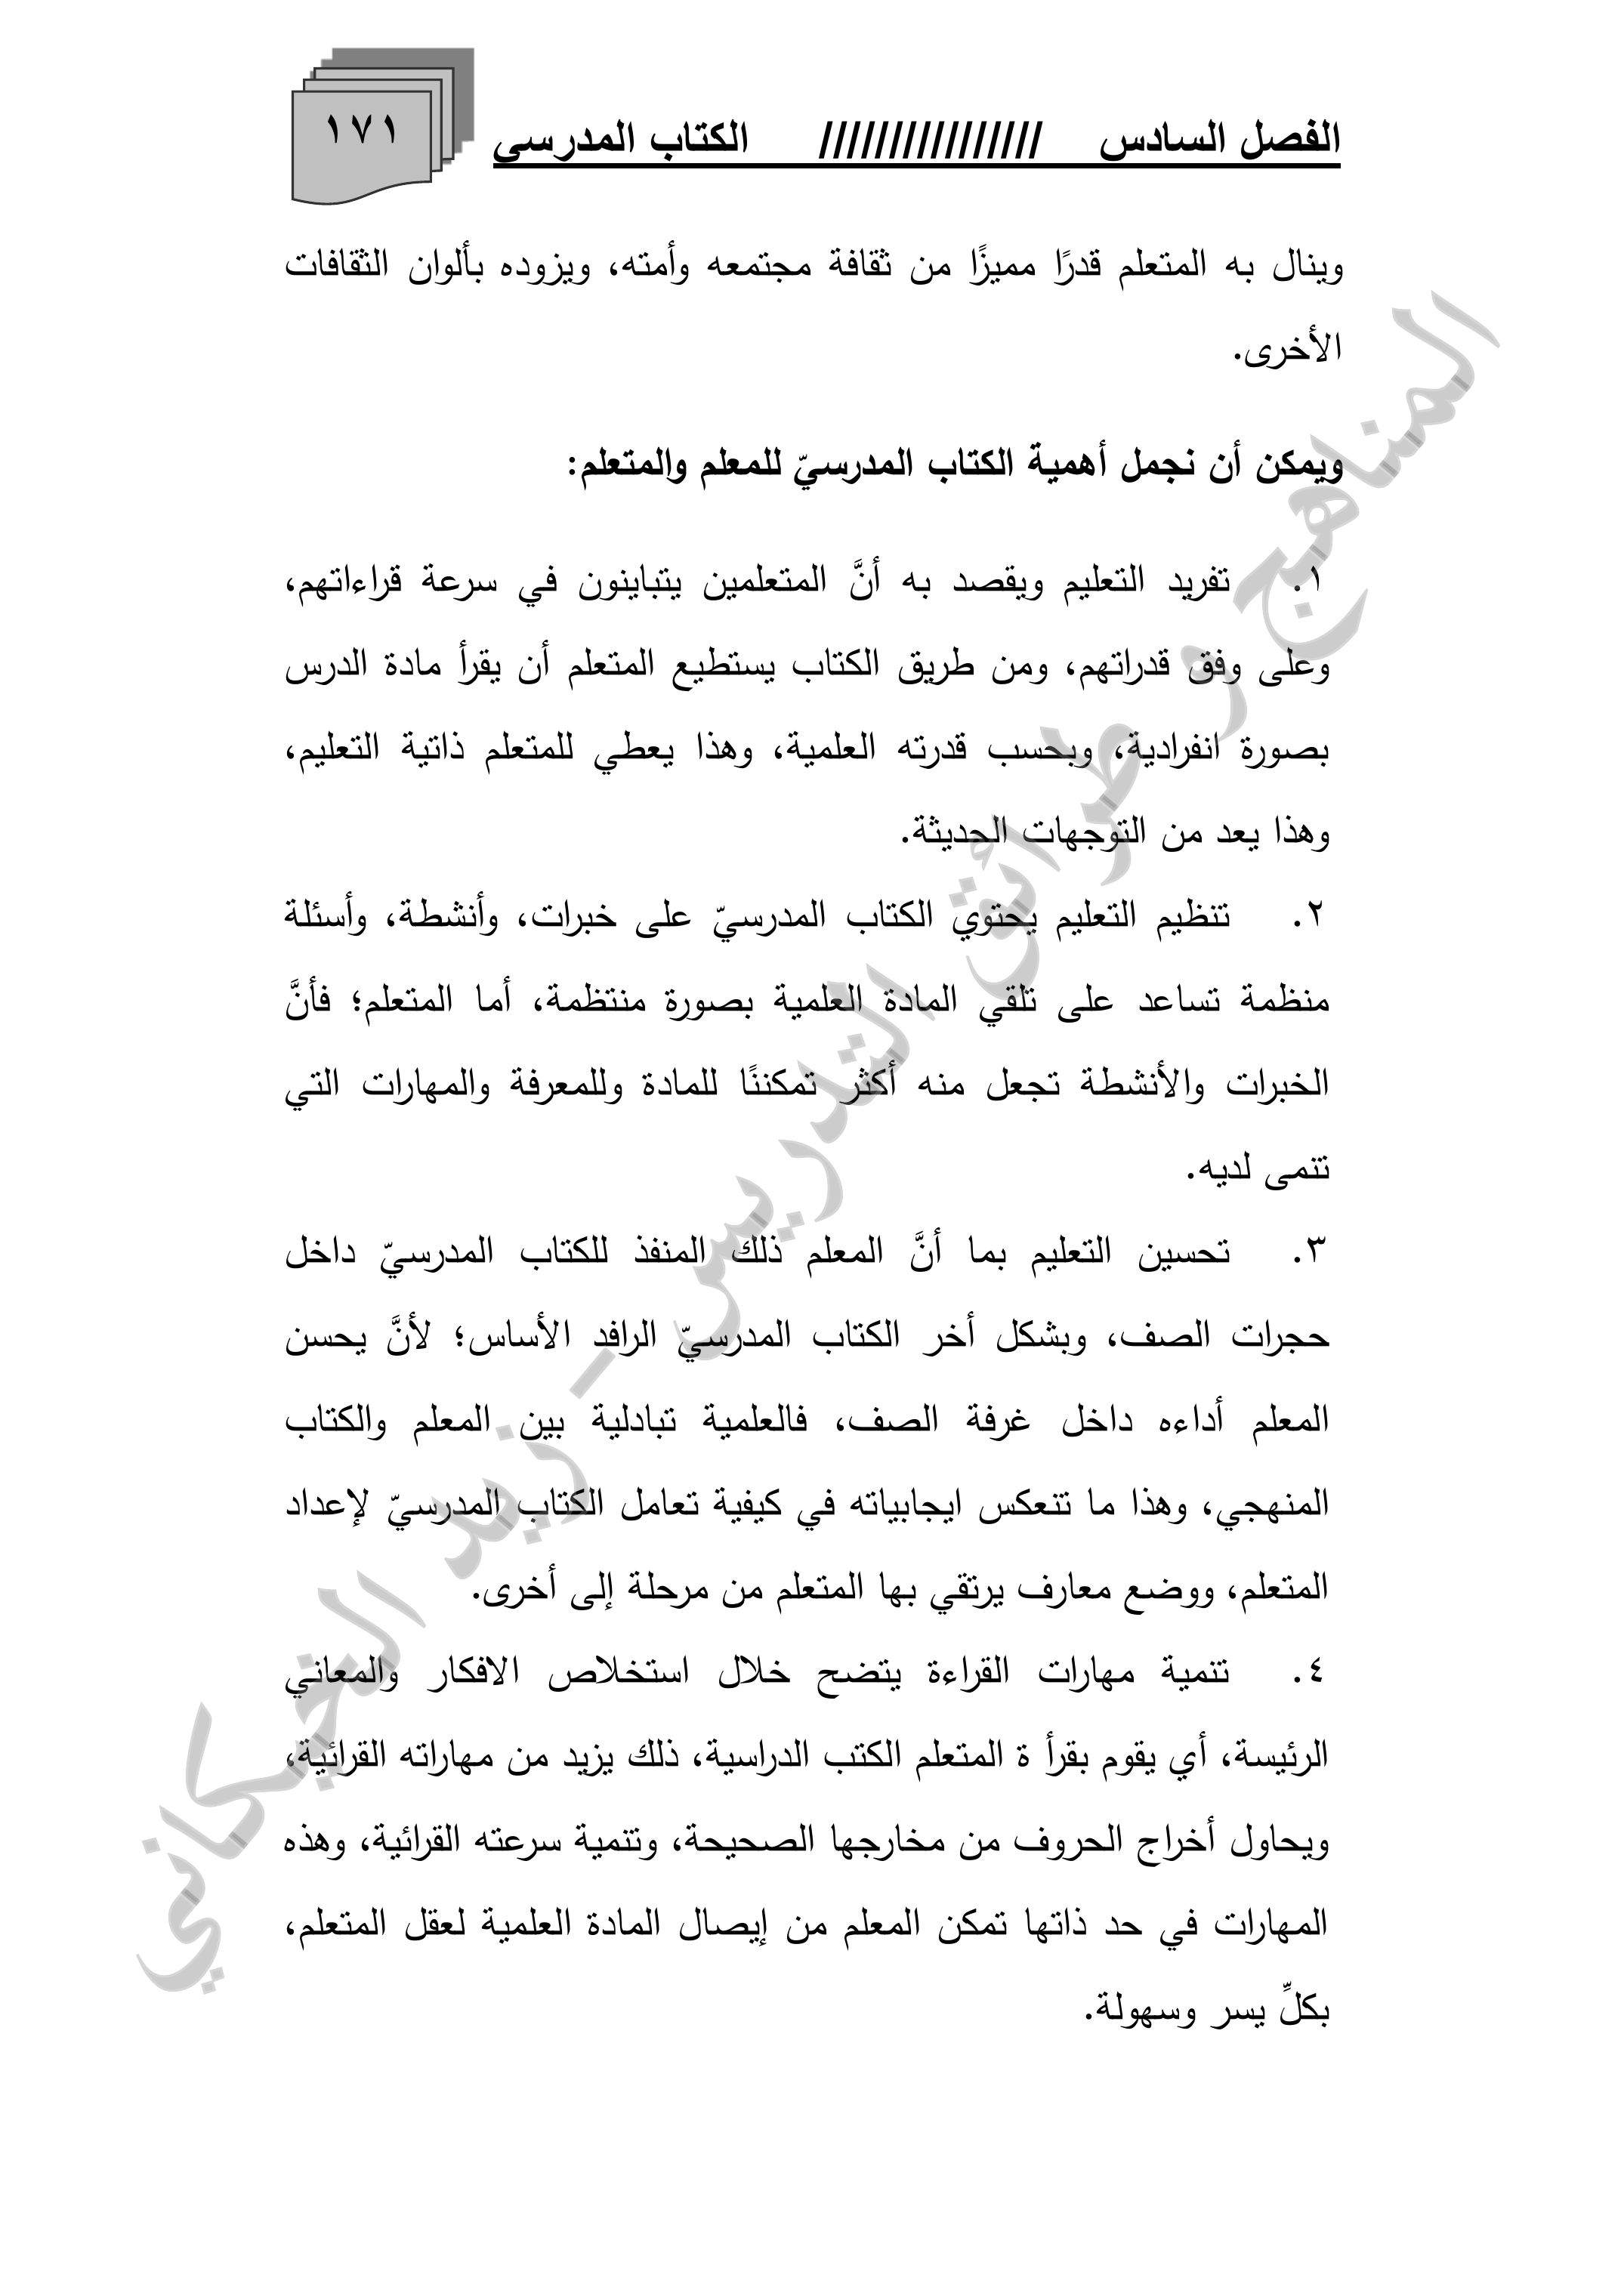 الفصل السادس //////////////// الكتاب المدرسي
١٧١
وينال به المتعلم قدرًا مميزًا من ثقافة مجتمعه وأمته، ويزوده بألوان الثقافات
الأخرى.
ويمكن أن نجمل أهمية الكتاب المدرسيّ للمعلم والمتعلم:
١. تفريد التعليم ويقصد به أنَّ المتعلمين يتباينون في سرعة قراءاتهم،
وعلى وفق قدراتهم، ومن طريق الكتاب يستطيع المتعلم أن يقرأ مادة الدرس
بصورة انفرادية، وبحسب قدرته العلمية، وهذا يعطي للمتعلم ذاتية التعليم،
وهذا يعد من التوجهات الحديثة.
٢. تنظيم التعليم يحتوي الكتاب المدرسيّ على خبرات، وأنشطة، وأسئلة
منظمة تساعد على تلقي المادة العلمية بصورة منتظمة، أما المتعلم؛ فأنَّ
الخبرات والأنشطة تجعل منه أكثر تمكننًا للمادة وللمعرفة والمهارات التي
تنمى لديه.
٣. تحسين التعليم بما أنَّ المعلم ذلك المنفذ للكتاب المدرسيّ داخل
حجرات الصف، وبشكل أخر الكتاب المدرسيّ الرافد الأساس؛ لأنَّ يحسن
المعلم أداءه داخل غرفة الصف، فالعلمية تبادلية بين المعلم والكتاب
المنهجي، وهذا ما تنعكس ايجابياته في كيفية تعامل الكتاب المدرسيّ لإعداد
المتعلم، ووضع معارف يرتقي بها المتعلم من مرحلة إلى أخرى.
٤. تنمية مهارات القراءة يتضح خلال استخلاص الافكار والمعاني
الرئيسة، أي يقوم بقرأ ة المتعلم الكتب الدراسية، ذلك يزيد من مهاراته القرائية،
ويحاول أخراج الحروف من مخارجها الصحيحة، وتنمية سرعته القرائية، وهذه
المهارات في حد ذاتها تمكن المعلم من إيصال المادة العلمية لعقل المتعلم،
بكلِّ يسر وسهولة.
المناهج و طرائق التدريس - زيد الخيكاني